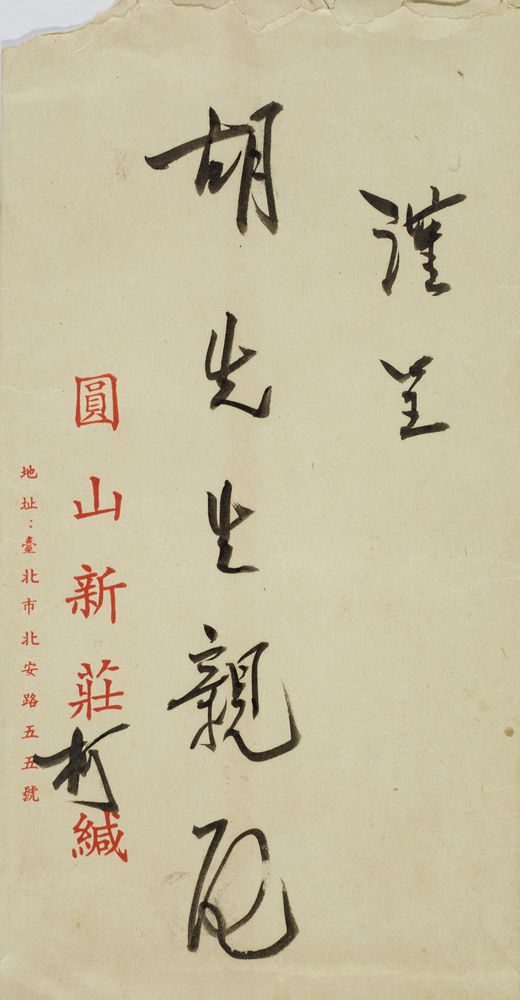 謹呈
胡先生親展
圓山新莊柯緘
地址：臺北市北安路五五號